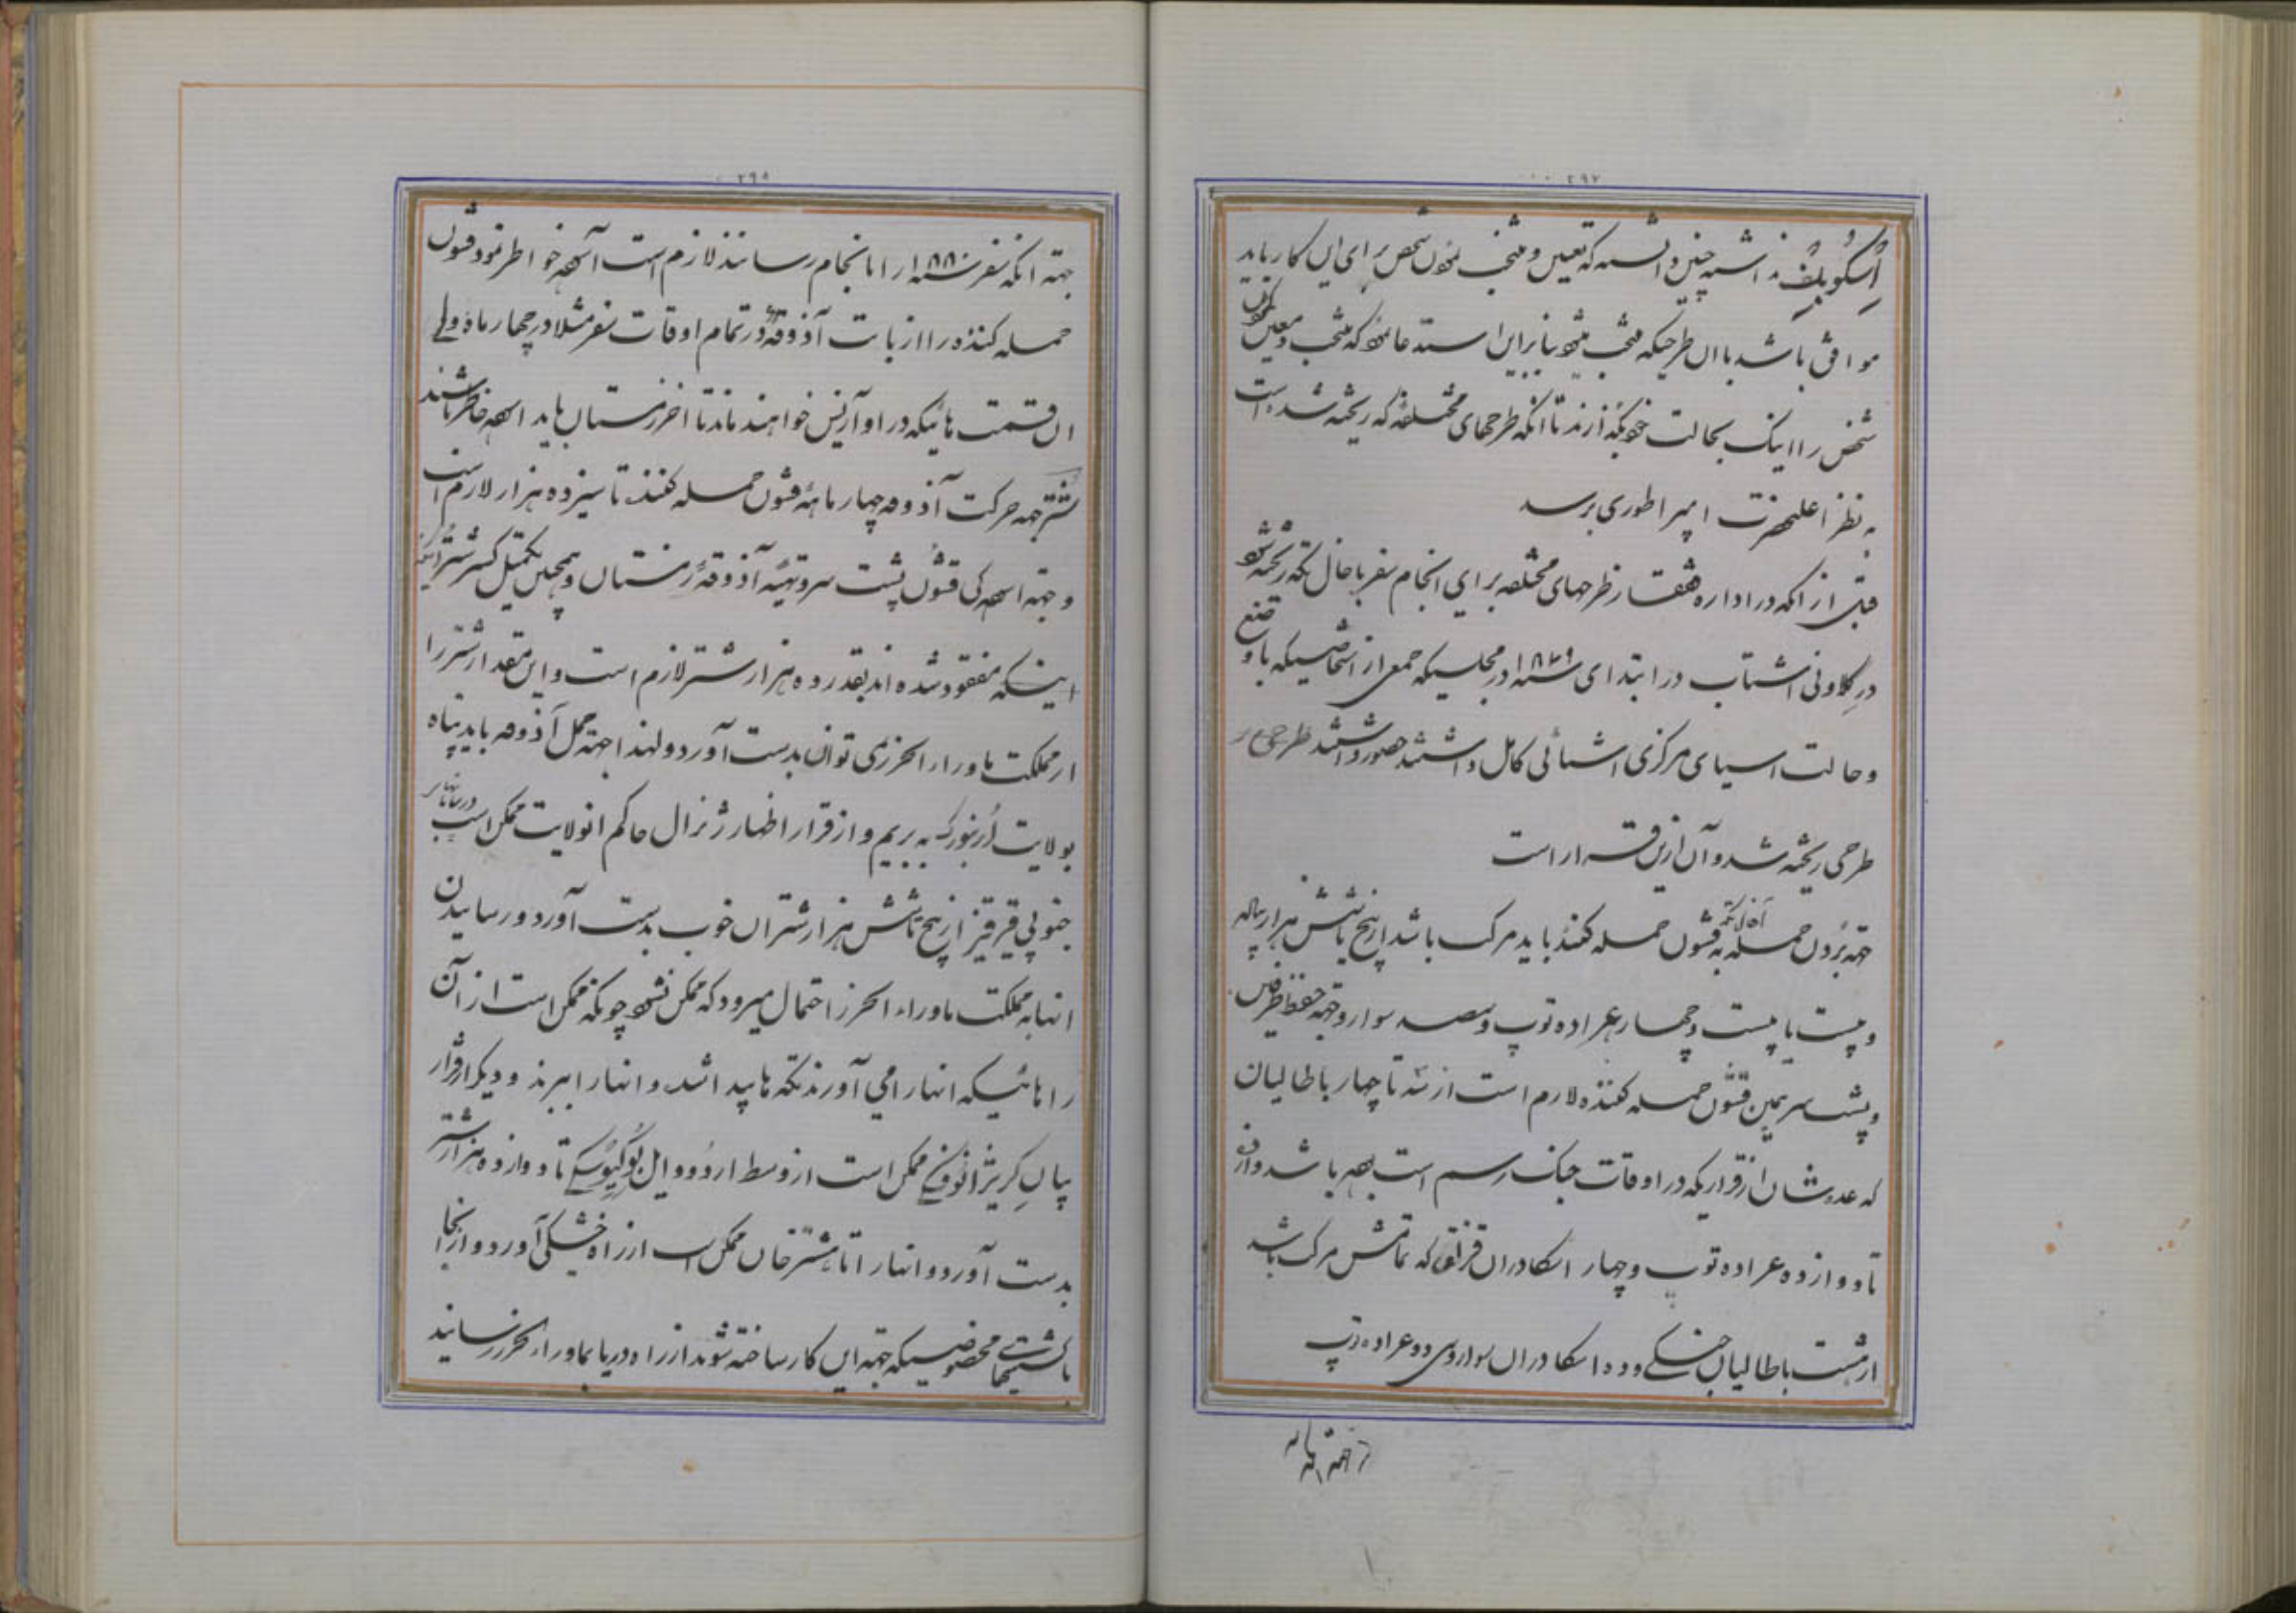 ۲۹۷
اسکوبلف داشته چنین دانسته که تعیین و منتخب نمودن شخص برای این کار باید
موافق باشد با ان طرحیکه منتخب میشود بنابراین استدعا نمود که منتخب و معین نمودن
شخص را اینک بحالت خود بگذارند تا انکه طرحهای مختلفه که ریخته شده است
به نظر اعلیحضرت امپراطوری برسد
قبل از انکه در اداره قفقاز طرحهای مختلفه برای انجام سفر باخال تکه ریخته شود
در کلاونی اشتاب در ابتدای سنه ۱۸۷۹ در مجلسیکه جمعی از اشخاصیکه با وضع
و حالت اسیای مرکزی اشنائی کامل داشتند حضور داشتند
طرحی ریخته شد و آن ازین قرار است
جهة بردن حمله به آخال تکه قشون حمله کننده باید مرکب باشد از پنج یا شش هزار پیاده
و بیست یا بیست و چهار عراده توپ و سیصد سوار و جهة حفظ طرفین
و پشت سر همین قشون حمله کننده لازم است از سه تا چهار باطالیان
که عددشان از قراریکه در اوقات جنگ رسم است بوده باشد و از ده
تا دوازده عراده توپ و چهار اسکادران قزاق که تمامش مرکب باشد
از هشت باطالیان خشکی و ده اسکادران سواره و سی و دو عراده توپ
جهة انکه
۲۹۸
جهة انکه سفر سنه ۱۸۸۰ را بانجام رسانند لازم است آسوده خواطر نمود قشون
حمله کننده را از بابت آذوقه در تمام اوقات سفر مثلا در چهار ماه ولی
ان قسمت هائیکه در اوآزیس خواهند ماند تا اخر زمستان باید اسوده خاطر باشند
شتر جهة حرکت آذوقه چهار ماهۀ قشون حمله کننده تا سیزده هزار لازم است
و جهة اسودگی قشون پشت سر و تهیۀ آذوقۀ زمستان و همچنین تکمیل کسر شتران
اینکه مفقود شده اند بقدر ده هزار شتر لازم است و این مقدار شتر را
از مملکت ماوراء الخزر نمی توان بدست آورد و لهذا جهة حمل آذوقه باید پناه
بولایت ارنبورک به بریم و از قرار اظهار ژنرال حاکم انولایت ممکن است
جنوبی قرقیز از پنج تا شش هزار شتران خوب بدست آورد و رسانیدن
انها به مملکت ماوراء الخزر احتمال میرود که ممکن نشود چونکه ممکن است از آن
راهائیکه انها را می آورند تکه ها پیدا شد و انها را ببرند و دیگر از قرار
بیان کریژانوفسکی ممکن است از وسط اردو و ایل بوکیوسکی تا دوازده هزار شتر
بدست آورد و انها را تا هشترخان ممکن است از راه خشکی آورد و از انجا
با کشتیهای مخصوصیکه جهة این کار ساخته شوند از راه دریا بماوراء الخزر رسانید